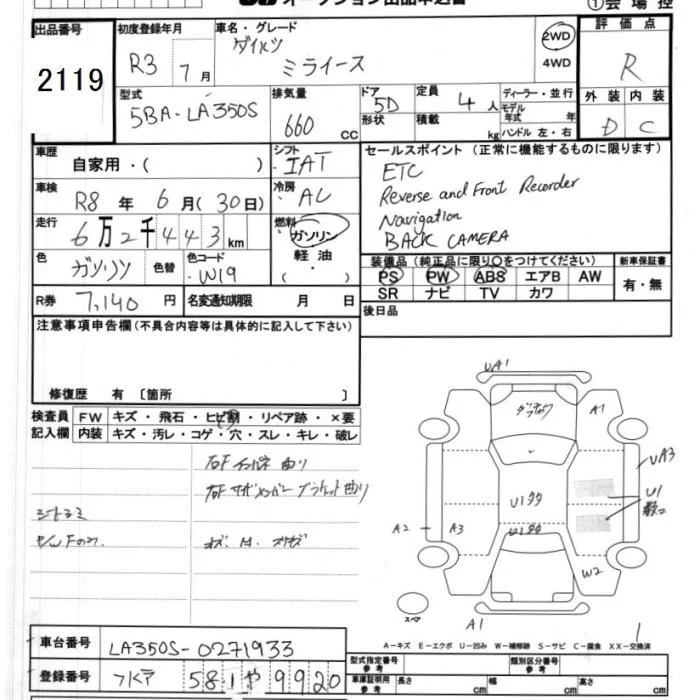 オークション出品申込書
①会場控
出品番号
2119
初度登録年月
R3年 7月
車名・グレード
ダイハツ
ミライース
2WD
4WD
評価点
R
外装 内装
D C
型式
5BA-LA350S
排気量
660 cc
ドア
5D
形状
定員
4 人
積載
kg
ディーラー・並行
モデル
年式 年
ハンドル 左・右
車歴
自家用・( )
シフト
IAT
セールスポイント (正常に機能するものに限ります)
ETC
Reverse and Front Recorder
Navigation
BACK CAMERA
車検
R8 年 6 月(30日)
冷房
AC
走行
6万2千443 km
燃料
ガソリン
軽油
・
色
色替
色コード
W19
装備品 (純正品に限り○をつけてください)
新車保証書
PS PW ABS エアB AW
SR ナビ TV カワ
有・無
R券 7,140 円
名変通知期限 月 日
後日品
注意事項申告欄 (不具合内容等は具体的に記入して下さい)
修復歴 有 〔箇所 〕
検査員
記入欄
FW キズ・飛石・ヒビ割・リペア跡・×要
内装 キズ・汚レ・コゲ・穴・スレ・キレ・破レ
右Fインパネ 曲り
右Fサイドメンバー ブラケット曲り
シートシミ
UA1
A1
UA3
U1
U1タタ
A2
A3
U1タタ
W2
スペア
A1
1
A-キズ E-エクボ U-凹み W-補修跡 S-サビ C-腐食 XX-交換済
車台番号 LA350S-0271933
登録番号 581 や 9920
型式指定番号
参考
類別区分番号
参考
車庫証明用
参考
長さ cm
幅 cm
高さ cm